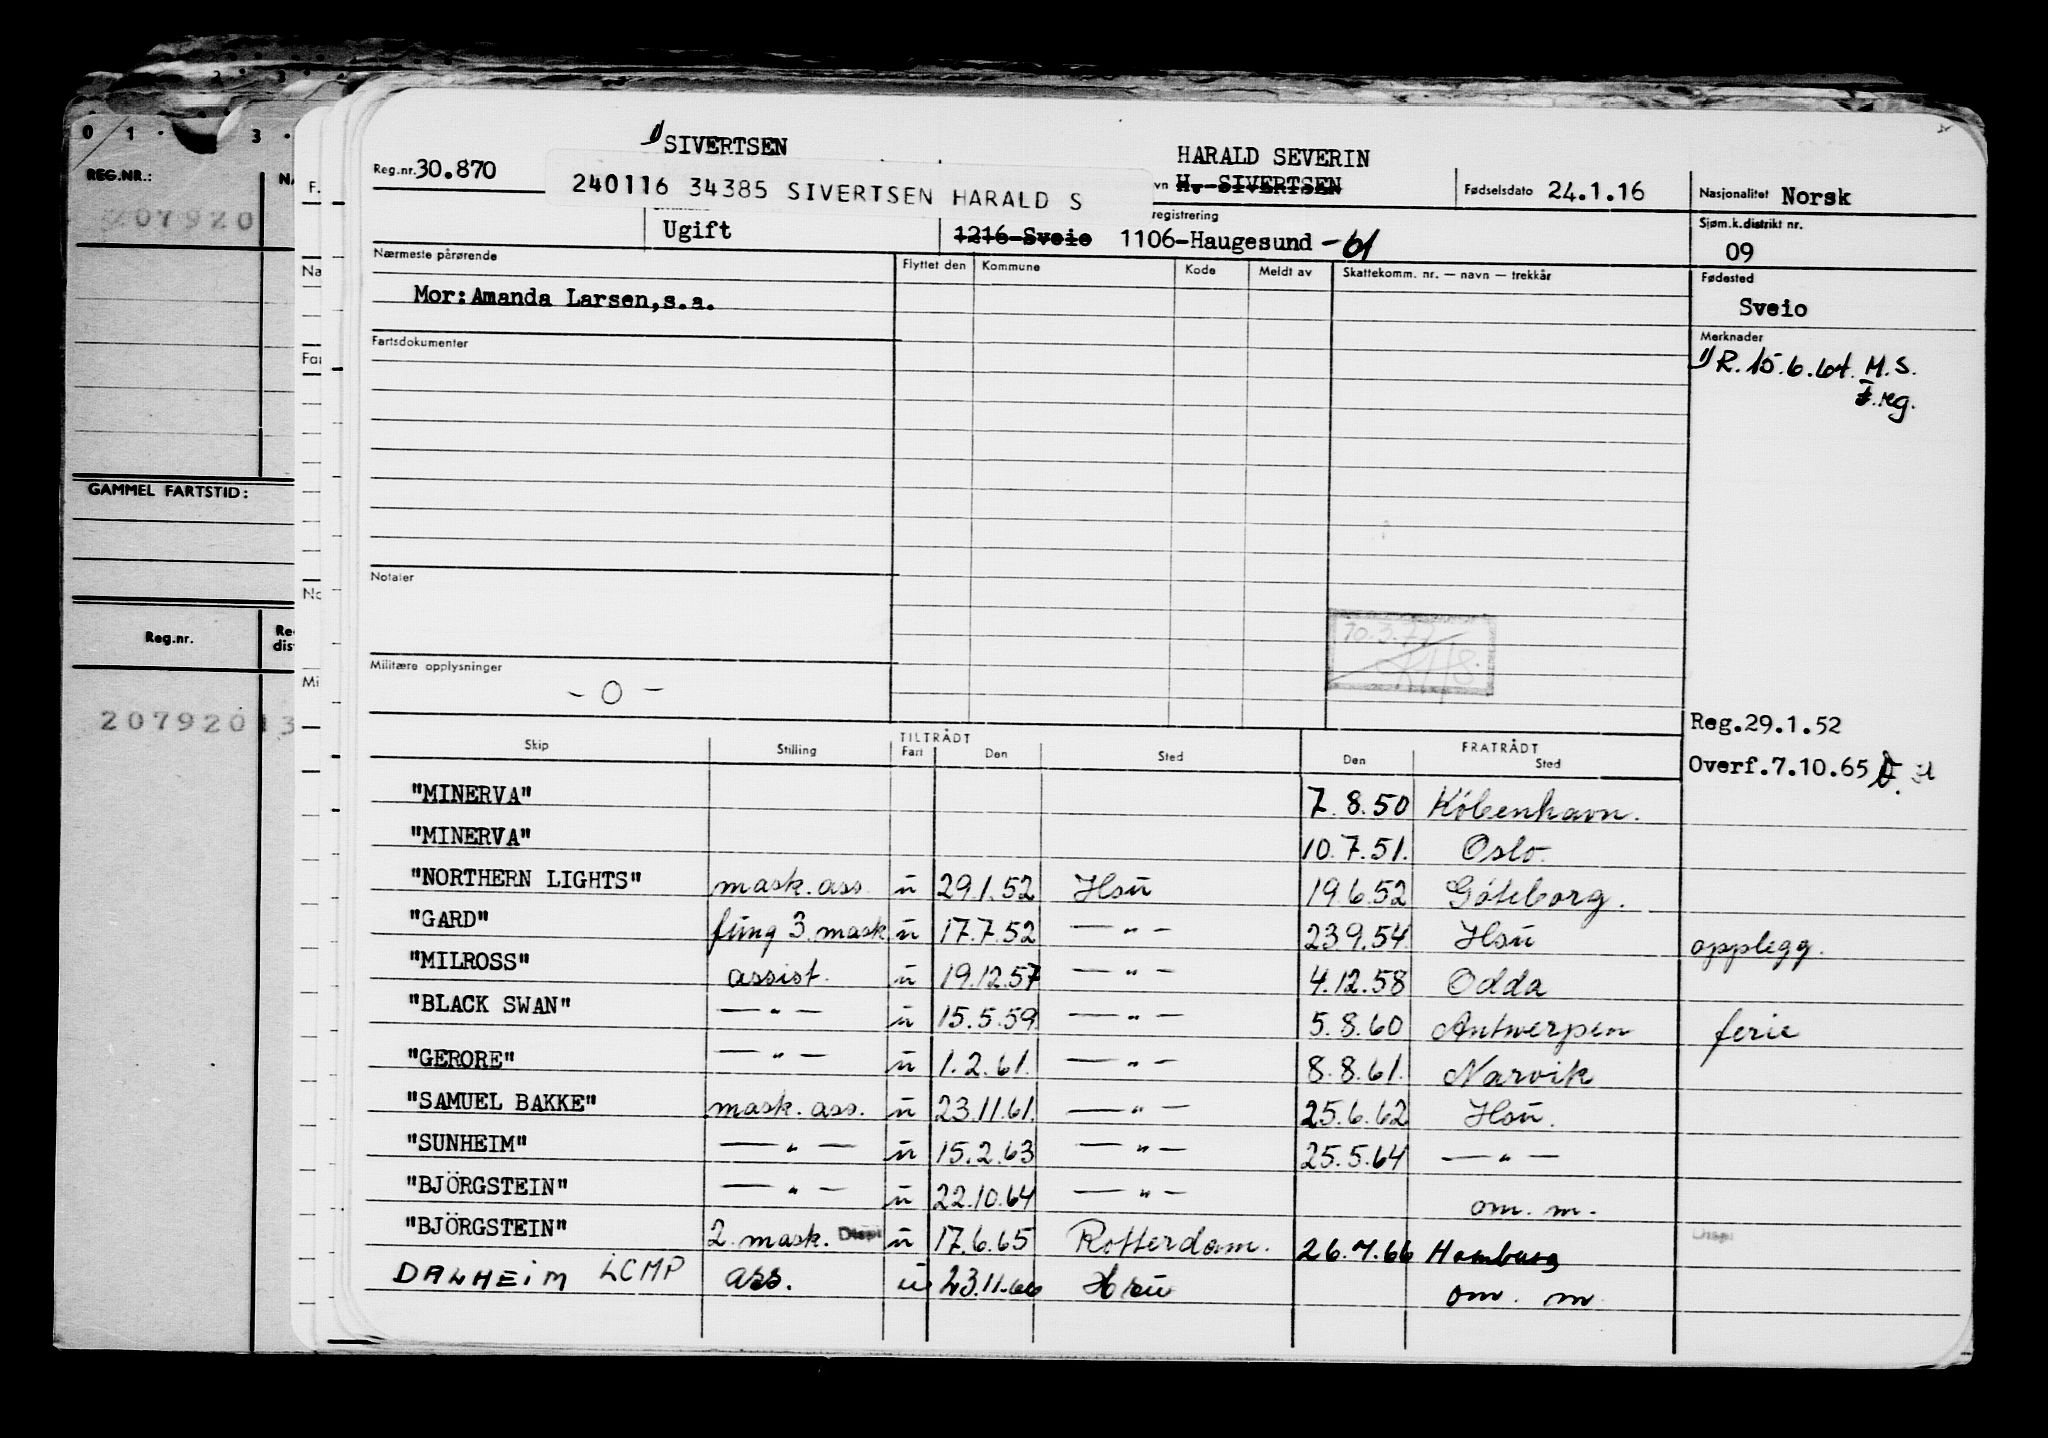 0 1 · 3 ·
REG.NR.:
207920
GAMMEL FARTSTID:
Reg.nr.
207920 13
1) SIVERTSEN
HARALD SEVERIN
Reg.nr. 30.870
240116 34385 SIVERTSEN HARALD S
vn H. SIVERTSEN
Fødselsdato 24.1.16
Nasjonalitet Norsk
Ugift
registrering
1216-Sveio 1106-Haugesund -61
Sjøm.k.distrikt nr.
09
Nærmeste pårørende
Flyttet den Kommune Kode Meldt av Skattekomm. nr. — navn — trekkår
Fødested
Mor: Amanda Larsen, s.a.
Sveio
Fartsdokumenter
Merknader
1) R. 15.6.64. M.S.
reg.
Notater
Militære opplysninger
- O -
10.3.77
Reg.29.1.52
Overf.7.10.65
Skip Stilling TILTRÅDT Fart Den Sted FRATRÅDT Den Sted
"MINERVA" 7.8.50 København.
"MINERVA" 10.7.51. Oslo.
"NORTHERN LIGHTS" mask. ass. u 29.1.52 Hsu 19.6.52 Göteborg.
"GARD" fung 3. mask u 17.7.52 — " — 23.9.54 Hsu opplegg.
"MILROSS" assist. u 19.12.57 — " — 4.12.58 Odda
"BLACK SWAN" — " — u 15.5.59 — " — 5.8.60 Antwerpen ferie
"GERORE" — " — u 1.2.61. — " — 8.8.61. Narvik
"SAMUEL BAKKE" mask. ass. u 23.11.61. — " — 25.6.62 Hsu.
"SUNHEIM" — " — u 15.2.63 — " — 25.5.64 — " —
"BJÖRGSTEIN" — " — u 22.10.64 — " — om. m.
"BJÖRGSTEIN" 2. mask. Disp u 17.6.65 Rotterdam. 26.7.66 Hamburg Disp
DALHEIM LCMP ass. u 23.11.66 Hsu om. m